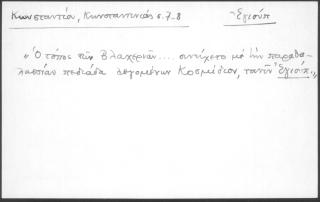 Κωνσταντίου, Κωνσταντινιάς σ. 7-8 Ἐγιούπ
"Ὁ τόπος τῶν Βλαχερνῶν.... συνήχετο μὲ τὴν παραθα-
λασσίαν πεδιάδα λεγομένην Κοσμίδιον, τανῦν Ἐγιούπ"